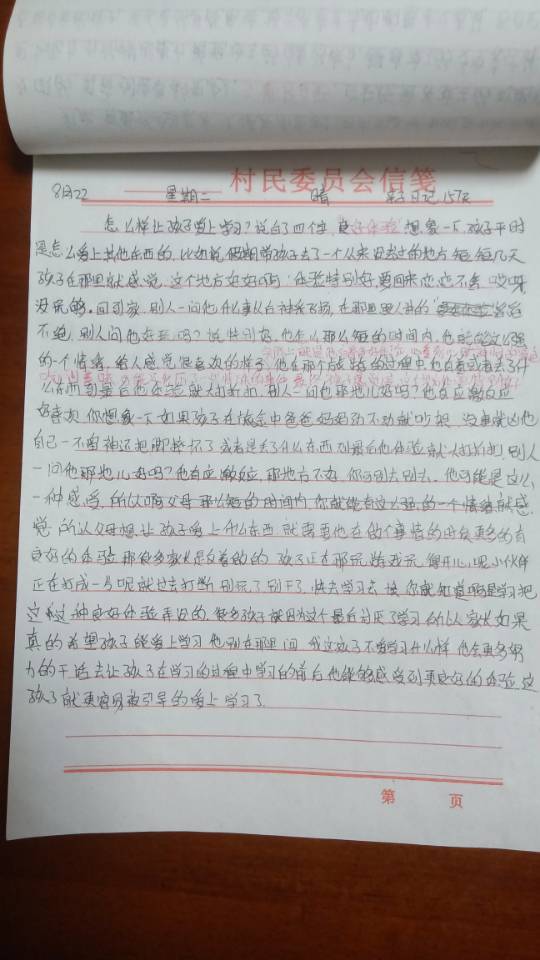 村民委员会信笺
8月22 星期二 晴 亲子日记157天
怎么样让孩子爱上学习?说白了四个字,良好体验 想象一下,孩子平时
是怎么爱上其他东西的,比如说假期带孩子去了一个从来没去过的地方短短几天
孩子在那里就感觉,这个地方好好啊 体验特别好,要回来恋恋不舍 哎呀
没玩够,回到家,别人一问他什么事从台神采飞扬,在那里
不绝,别人问他好玩吗?说特别好,他怎么那么短的时间内,他就能这么强
的一个情绪,给人感觉很喜欢的样子,他在那个旅游的过程中也
么东西到最后他体验就大打折扣,别人一问他那地儿好吗?他在应激反应
好喜欢,你想象一下如果孩子在旅途中爸爸妈妈动不动就吵架,没事就凶他
自己一不留神还把脚摔坏了或者是丢了什么东西到最后他体验就大打折扣,别人
一问他那地儿好吗?他有应激反应,那地方不好,你可别去别去,他可能是这么
一种感受,所以啊父母那么短的时间内,你就能有这么强的一个情绪就感
觉,所以父母想让孩子爱上什么东西,就需要他在做个事情的时候更多的有
良好的体验,那很多家长是反着做的,孩子正在那玩 呢小伙伴
正在打成一片呢就过去打断 别玩了别干了,快去学习去
这种良好体验弄没的,很多孩子就因为这个最后讨厌了学习 所以家长如果
真的希望孩子能爱上学习,他别在那里问,我这孩子不爱学习什么样,他会更多努
力的干 去让孩子在学习的过程中学习的前后他能够感受到更良好的体验,这
孩子就更容易被引导的爱上学习了
第 页